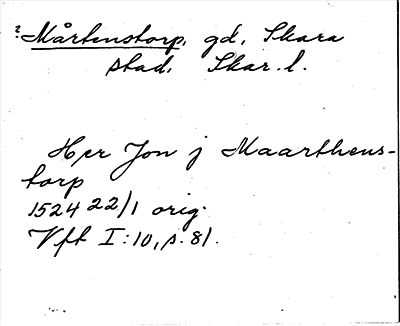 ? Mårtenstorp, gd, Skara
stad, Skar. l.
Her Jon j Maarthens-
torp
1524 22/1 orig.
Vft I:10, s. 81.